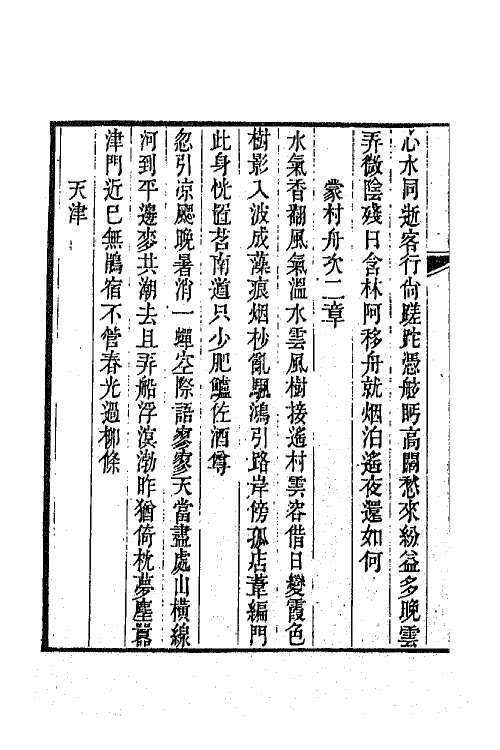 心水同逝客行尙蹉跎憑舷眄高關愁來紛益多晚雲
弄微陰殘日含林阿移舟就烟泊遙夜還如何
蒙村舟次二章
水氣香翻風氣溫水雲風樹接遙村雲容借日變霞色
樹影入波成藻痕烟杪亂颿鴻引路岸傍孤店葦編門
此身恍置苕南道只少肥鱸佐酒尊
忽引凉颸晚暑消一蟬空際語寥寥天當盡處山橫線
河到平邊麥共潮去且弄船浮溟渤昨猶倚枕夢塵囂
津門近已無鵑宿不管春光過柳條
天津